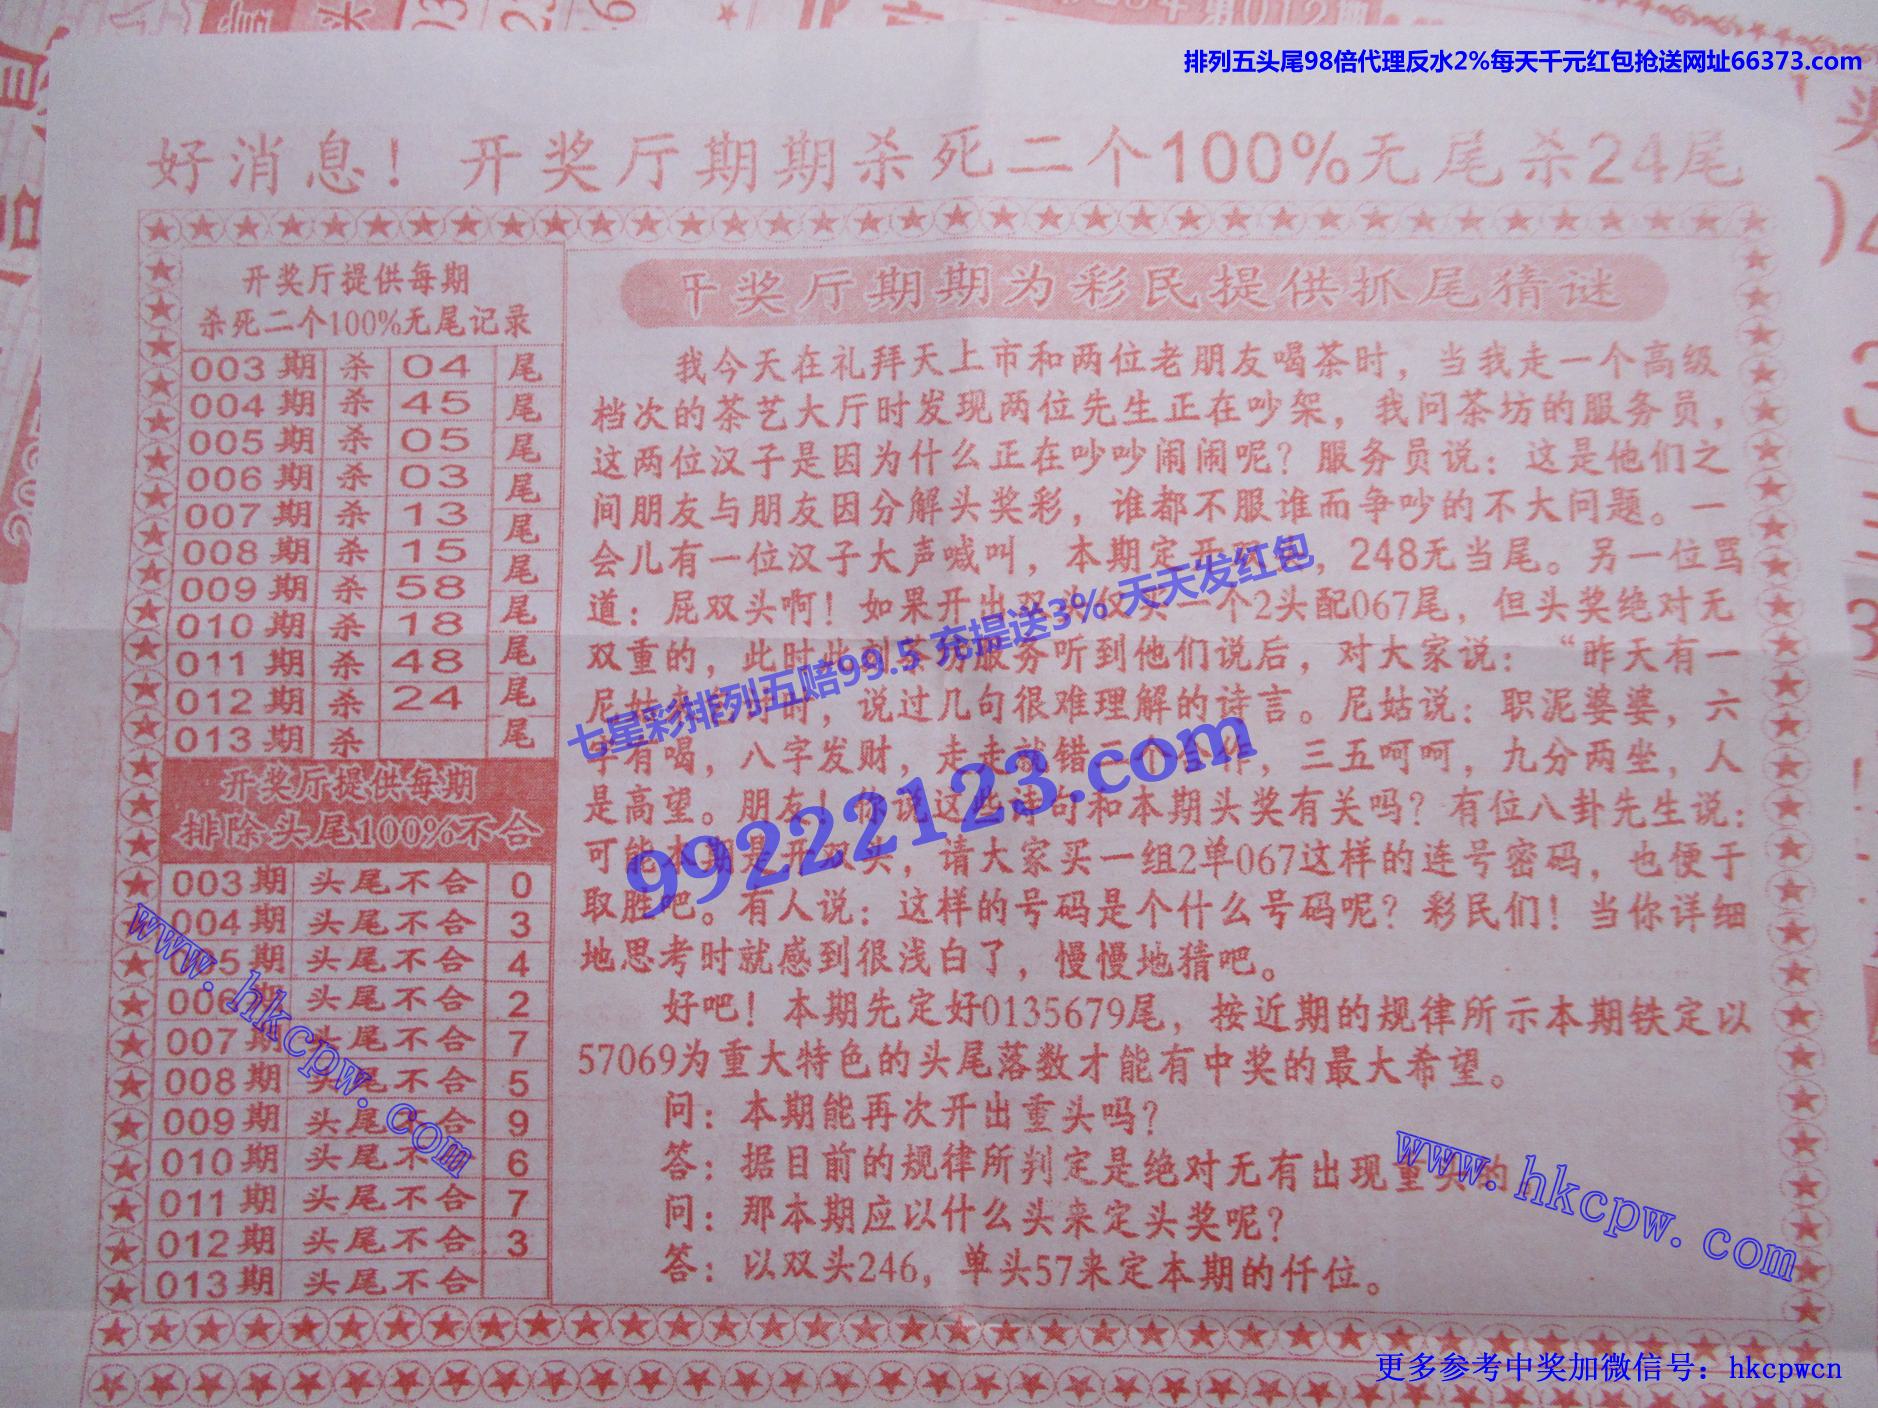 第012期
排列五头尾98倍代理反水2%每天千元红包抢送网址66373.com
好消息！开奖厅期期杀死二个100%无尾杀24尾
开奖厅提供每期
杀死二个100%无尾记录
003期 杀 04 尾
004期 杀 45 尾
005期 杀 05 尾
006期 杀 03 尾
007期 杀 13 尾
008期 杀 15 尾
009期 杀 58 尾
010期 杀 18 尾
011期 杀 48 尾
012期 杀 24 尾
013期 杀 尾
开奖厅提供每期
排除头尾100%不合
003期 头尾不合 0
004期 头尾不合 3
005期 头尾不合 4
006期 头尾不合 2
007期 头尾不合 7
008期 头尾不合 5
009期 头尾不合 9
010期 头尾不合 6
011期 头尾不合 7
012期 头尾不合 3
013期 头尾不合
开奖厅期期为彩民提供抓尾猜谜
我今天在礼拜天上市和两位老朋友喝茶时，当我走一个高级
档次的茶艺大厅时发现两位先生正在吵架，我问茶坊的服务员，
这两位汉子是因为什么正在吵吵闹闹呢？服务员说：这是他们之
间朋友与朋友因分解头奖彩，谁都不服谁而争吵的不大问题。一
会儿有一位汉子大声喊叫，本期定开双头，248无当尾。另一位骂
道：屁双头啊！如果开出双头仅买一个2头配067尾，但头奖绝对无
双重的，此时此刻茶坊服务听到他们说后，对大家说：“昨天有一
尼姑来时，说过几句很难理解的诗言。尼姑说：职泥婆婆，六
字有喝，八字发财，走走就错二个合作，三五呵呵，九分两坐，人
是高望。朋友！你说这些诗句和本期头奖有关吗？有位八卦先生说：
可能本期是开双头，请大家买一组2单067这样的连号密码，也便于
取胜吧。有人说：这样的号码是个什么号码呢？彩民们！当你详细
地思考时就感到很浅白了，慢慢地猜吧。
好吧！本期先定好0135679尾，按近期的规律所示本期铁定以
57069为重大特色的头尾落数才能有中奖的最大希望。
问：本期能再次开出重头吗？
答：据目前的规律所判定是绝对无有出现重头的
问：那本期应以什么头来定头奖呢？
答：以双头246，单头57来定本期的仟位。
七星彩排列五赔99.5 充提送3% 天天发红包
99222123.com
www.hkcpw.com
www.hkcpw.com
更多参考中奖加微信号：hkcpwcn